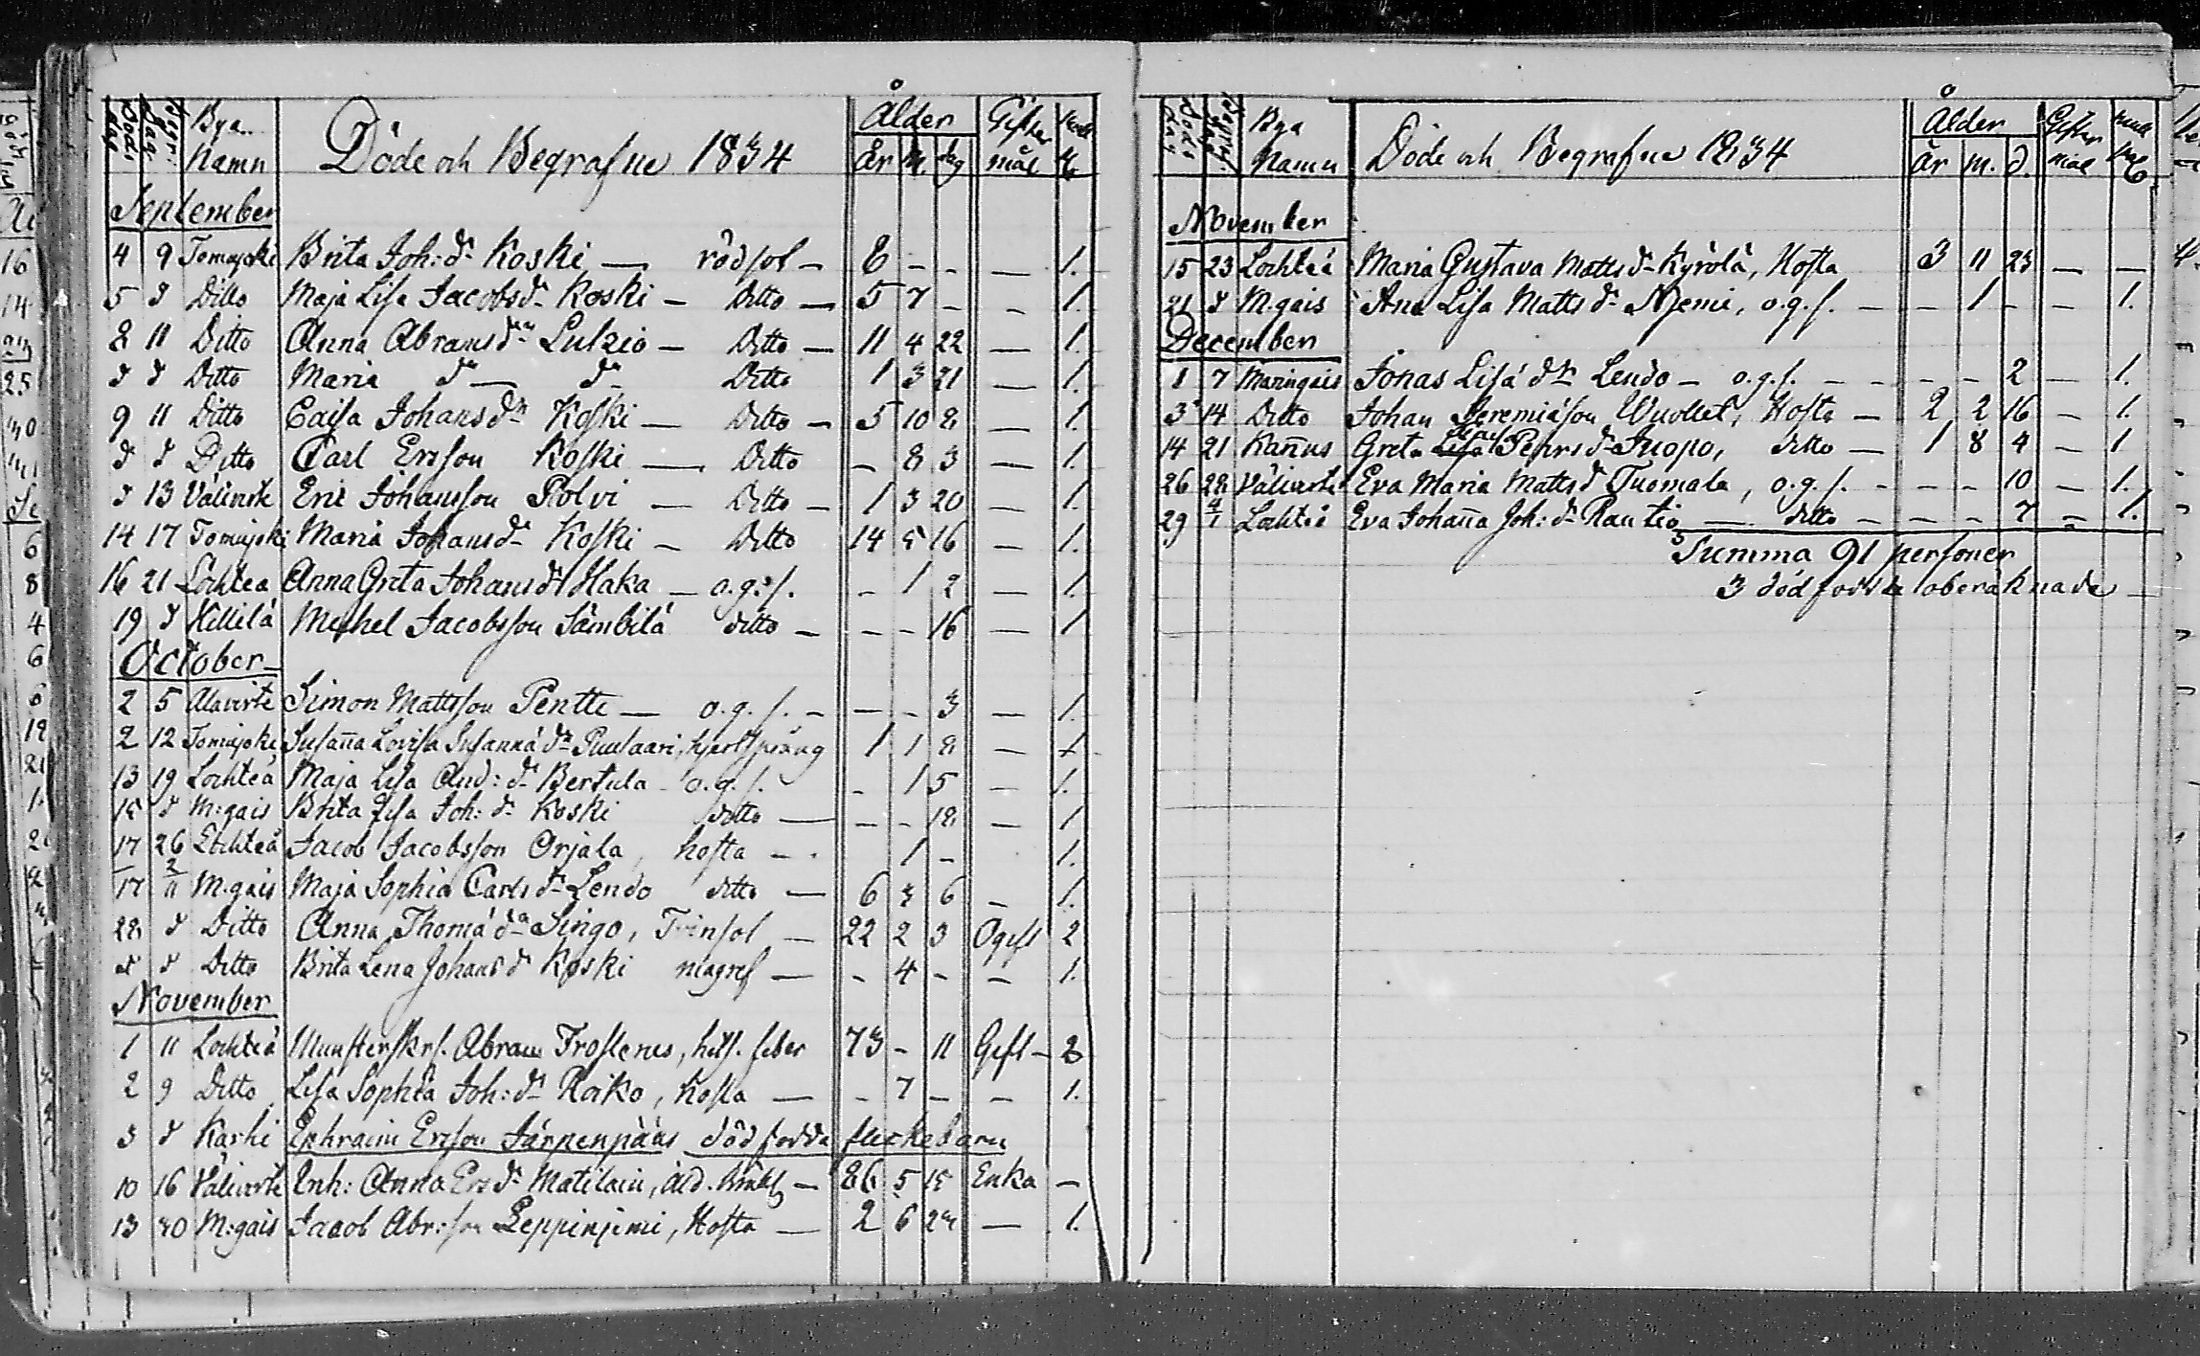 Döds dag Begr: dag Bya Namn Döde och Begrafne 1834 Ålder År M. dag Giftermål
September
4 9 Tomujoki Brita Joh: dr Koski — rödsot - 8 - - — 1.
5 d Ditto Maja Lisa Jacobs dr Koski — Ditto — 5 7 - - 1.
8 11 Ditto Anna Abrams dr Lulzio — Ditto — 11 4 22 — 1.
d d Ditto Maria dr — do Ditto 1 3 21 — 1.
9 11 Ditto Caisa Johans dr Koski — Ditto — 5 10 8 — 1.
d d Ditto Carl Ersson Koski — Ditto - 8 3 — 1.
d 13 Välivirte Eric Johansson Polvi — Ditto - 1 3 20 — 1.
14 17 Tomujoki Maria Johans dr Koski — Ditto 14 5 16 — 1.
16 21 Lochteå Anna Greta Johans dr Haka — o.g.s. - 1 2 — 1.
19 d Killilä Michel Jacobsson Sämbilä ditto - - - 16 — 1
October
2 5 Alavirte Simon Mattsson Pentti — o.g.s. - - - 3 — 1.
2 12 Tomujoki Susaña Lovisa Susannä dr Puulaari, hjertsprång 1 1 8 — 1
13 19 Lochteå Maja Lisa And: dr Bertula - o.g.s. - 1 5 — 1.
15 d M:gais Brita Lisa Joh: dr Koski ditto — - - 18 — 1.
17 26 Lochteå Jacob Jacobsson Orjala, hosta - 1 - 1.
17 2/11 M.gais Maja Sophia Carls dr Lendo ditto — 6 3 6 - 1.
28 d Ditto Anna Thomä dr Singo, Trinsot — 22 2 3 Ogift 2
d d Ditto Brita Lena Johans dr Koski magref — - 4 - - 1.
November
1 11 Lochteå Munsterskrf. Abram Frosterus, hits. feber 73 - 11 Gift - 3
2 9 Ditto Lisa Sophia Joh: dr Roiko, hosta — - 7 - - 1.
3 d Karhi Ephraim Ersson Järpenpääs dödfödda flickebarn
10 16 Välivirte Enk: Anna Ers dr Matilain, åld. bräckl — 86 5 15 Enka —
13 30 M:gais Jacob Abr:son Leppinjemi, Hosta — 2 6 23 — 1.
Döds dag Begrf. dag Bya Namn Döde och Begrafne 1834 Ålder År M. D. Giftermål
November
15 23 Lochteå Maria Gustava Matts dr Kyrölä, Hosta 3 11 23 — —
21 d M.gais Ana Lisa Matts dr Njemi, o.g.s. — - 1 - - 1.
December
1 7 Maringais Jonas Lisä dr Lendo — o.g.s. - - - 2 — 1.
3 14 Ditto Johan Jeremiäson Wuollet, Hosta — 2 2 16 - 1.
14 21 Kañus Greta Lisa Pehrs dr Juopo, ditto — 1 8 4 - 1
26 28 Välivirte Eva Maria Matts dr Tuomala, o.g.s. - - - 10 — 1.
29 4/1 Lochteå Eva Johaña Joh: dr Rautio — ditto - - - 7 - 1.
Summa 91 personer
3 dödfödda oberäknade —